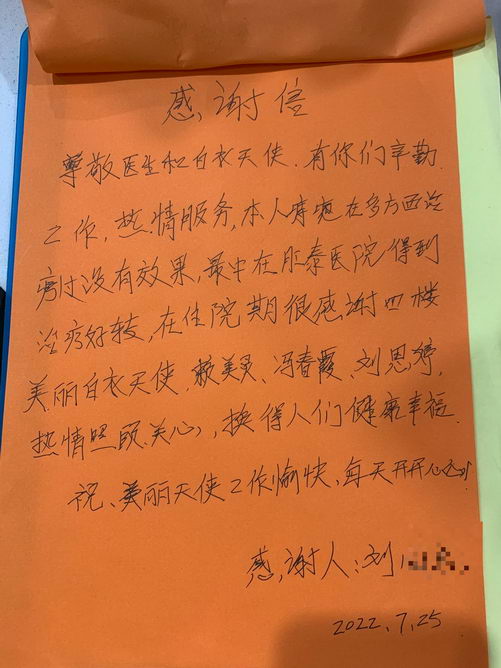 感谢信
尊敬医生和白衣天使、有你们辛勤
工作,热情服务,本人疼疱在多方面治
疗过没有效果,最中在肛泰医院得到
治疗好转,在住院期很感谢四楼
美丽白衣天使、美灵、冯春霞、刘思婷,
热情照顾、关心,换得人们健康幸福
祝、美丽天使工作愉快、每天开开心心
感谢人:刘
2022.7.25